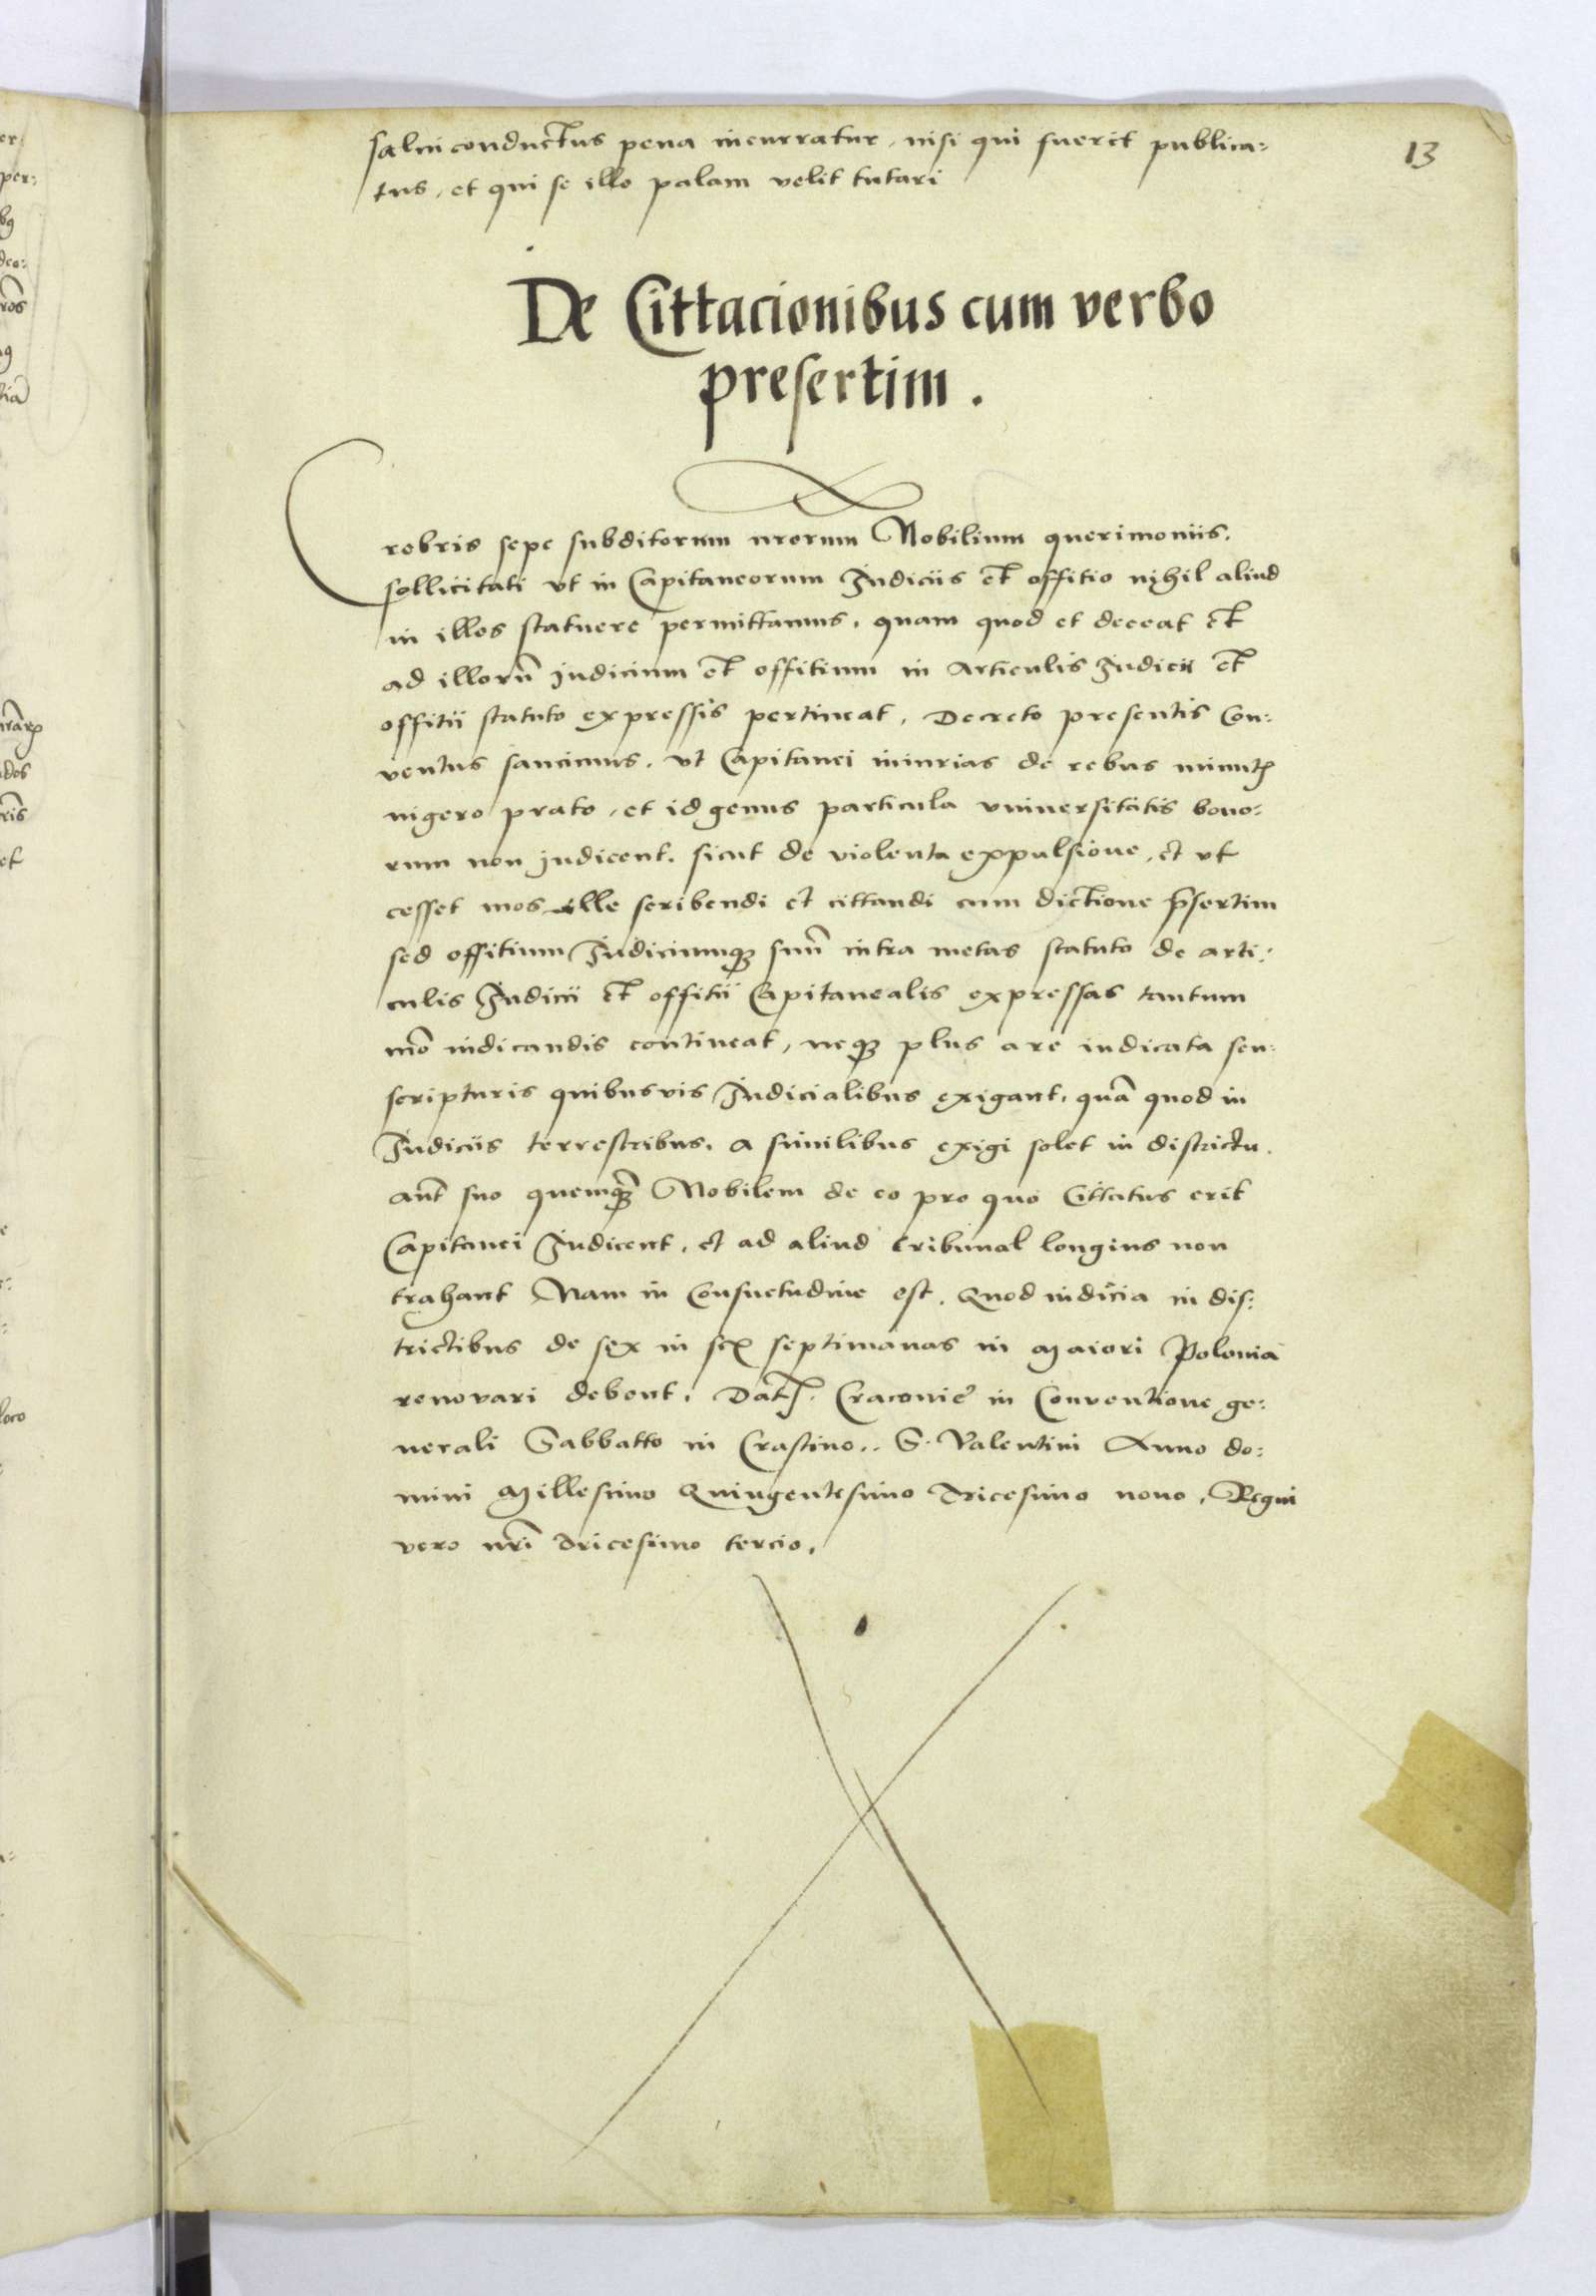 salviconductus pena incurratur, nisi qui fuerit publica=
tus, et qui se illo palam velit tutari
13
De Cittacionibus cum verbo
presertim.
Crebris sepe subditorum nrorum Nobilium querimoniis.
sollicitati vt in Capitaneorum Judiciis et offitio nihil aliud
in illos statuere permittamus, quam quod et deceat et
ad illorũ judicium et offitium in Articulis Judicii et
offitii statuto expressis pertineat, Decreto presentis Con=
ventus sancimus, vt Capitanei iniurias de rebus
nigero prato, et id genus particula vniversitatis bono=
rum non judicent, sicut de violenta expulsione, et vt
cesset mos ille scribendi et cittandi cum dictione p̃sertim
sed offitium Judiciumq suũ intra metas statuto de arti=
culis Judicii et offitii Capitanealis expressas tantum
mõ iudicandis contineat, neq plus a re iudicata seu
scripturis quibusvis Judicialibus exigant, quã quod in
Judiciis terrestribus, a similibus exigi solet in districtu.
aũt suo quemq̃ Nobilem de eo pro quo Cittatus erit
Capitanei Judicent, et ad aliud tribunal longius non
trahant Nam in Consuetudine est, Quod iudicia in dis=
trictibus de sex in sex septimanas in Maiori Polonia
renovari debent, Dat Cracovie in Conventione ge=
nerali Sabbatto in Crastino.. S. Valentini Anno do=
mini Millesimo Quingentesimo Tricesimo nono, Regni
vero nr̃i Tricesimo tercio.